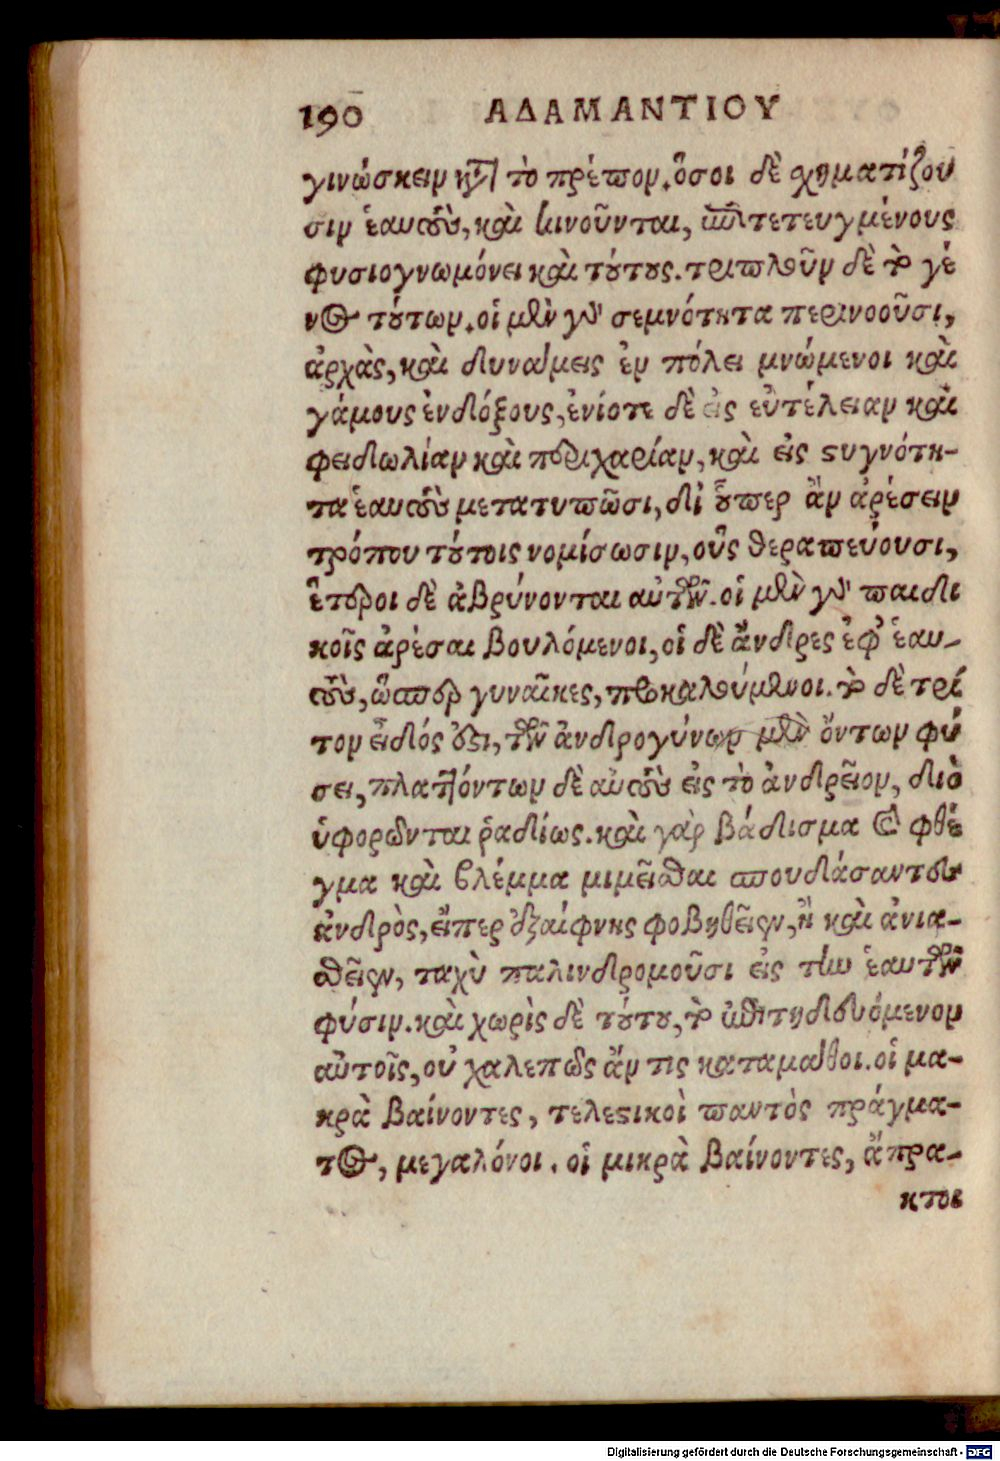 190 ΑΔΑΜΑΝΤΙΟΥ
γινώσκειν κατὰ τὸ πρέπον. ὅσοι δὲ σχηματίζου
σιν ἑαυτοὺς, καὶ κινοῦνται, ὡς τετευγμένους
φυσιογνωμόνει καὶ τούτους. τριπλοῦν δὲ τὸ γέ
νος τούτων. οἱ μὲν γὰρ σεμνότητα περινοοῦσι,
ἀρχὰς, καὶ δυνάμεις ἐν πόλει μνώμενοι καὶ
γάμους ἐνδόξους, ἐνίοτε δὲ εἰς εὐτέλειαν καὶ
φειδωλίαν καὶ περιχαρίαν, καὶ εἰς στυγνότη-
τα ἑαυτοὺς μετατυπῶσι, δι' οὗπερ ἂν ἀρέσειν
τρόπου τούτοις νομίσωσιν, οὓς θεραπεύουσι,
ἕτεροι δὲ ἁβρύνονται αὐτῶν. οἱ μὲν γὰρ παιδι
κοῖς ἀρέσαι βουλόμενοι, οἱ δὲ ἄνδρες ἐφ' ἑαυ-
τοὺς, ὥσπερ γυναῖκες, προκαλούμενοι. τὸ δὲ τρί
τον εἶδός ἐστι, τῶν ἀνδρογύνων μὲν ὄντων φύ
σει, πλαττόντων δὲ αὑτοὺς εἰς τὸ ἀνδρεῖον, διὸ
ὑφορῶνται ῥαδίως. καὶ γὰρ βάδισμα καὶ φθέ
γμα καὶ βλέμμα μιμεῖσθαι σπουδάσαντες
ἀνδρὸς, εἴπερ ἐξαίφνης φοβηθεῖεν, ἢ καὶ ἀνια-
θεῖεν, ταχὺ παλινδρομοῦσι εἰς τὴν ἑαυτῶν
φύσιν. καὶ χωρὶς δὲ τούτου, τὸ ἐπιτηδευόμενον
αὐτοῖς, οὐ χαλεπῶς ἄν τις καταμάθοι. οἱ μα-
κρὰ βαίνοντες, τελεστικοὶ παντὸς πράγμα-
τος, μεγαλόνοι. οἱ μικρὰ βαίνοντες, ἄπρα-
κτοι
Digitalisierung gefördert durch die Deutsche Forschungsgemeinschaft - DFG